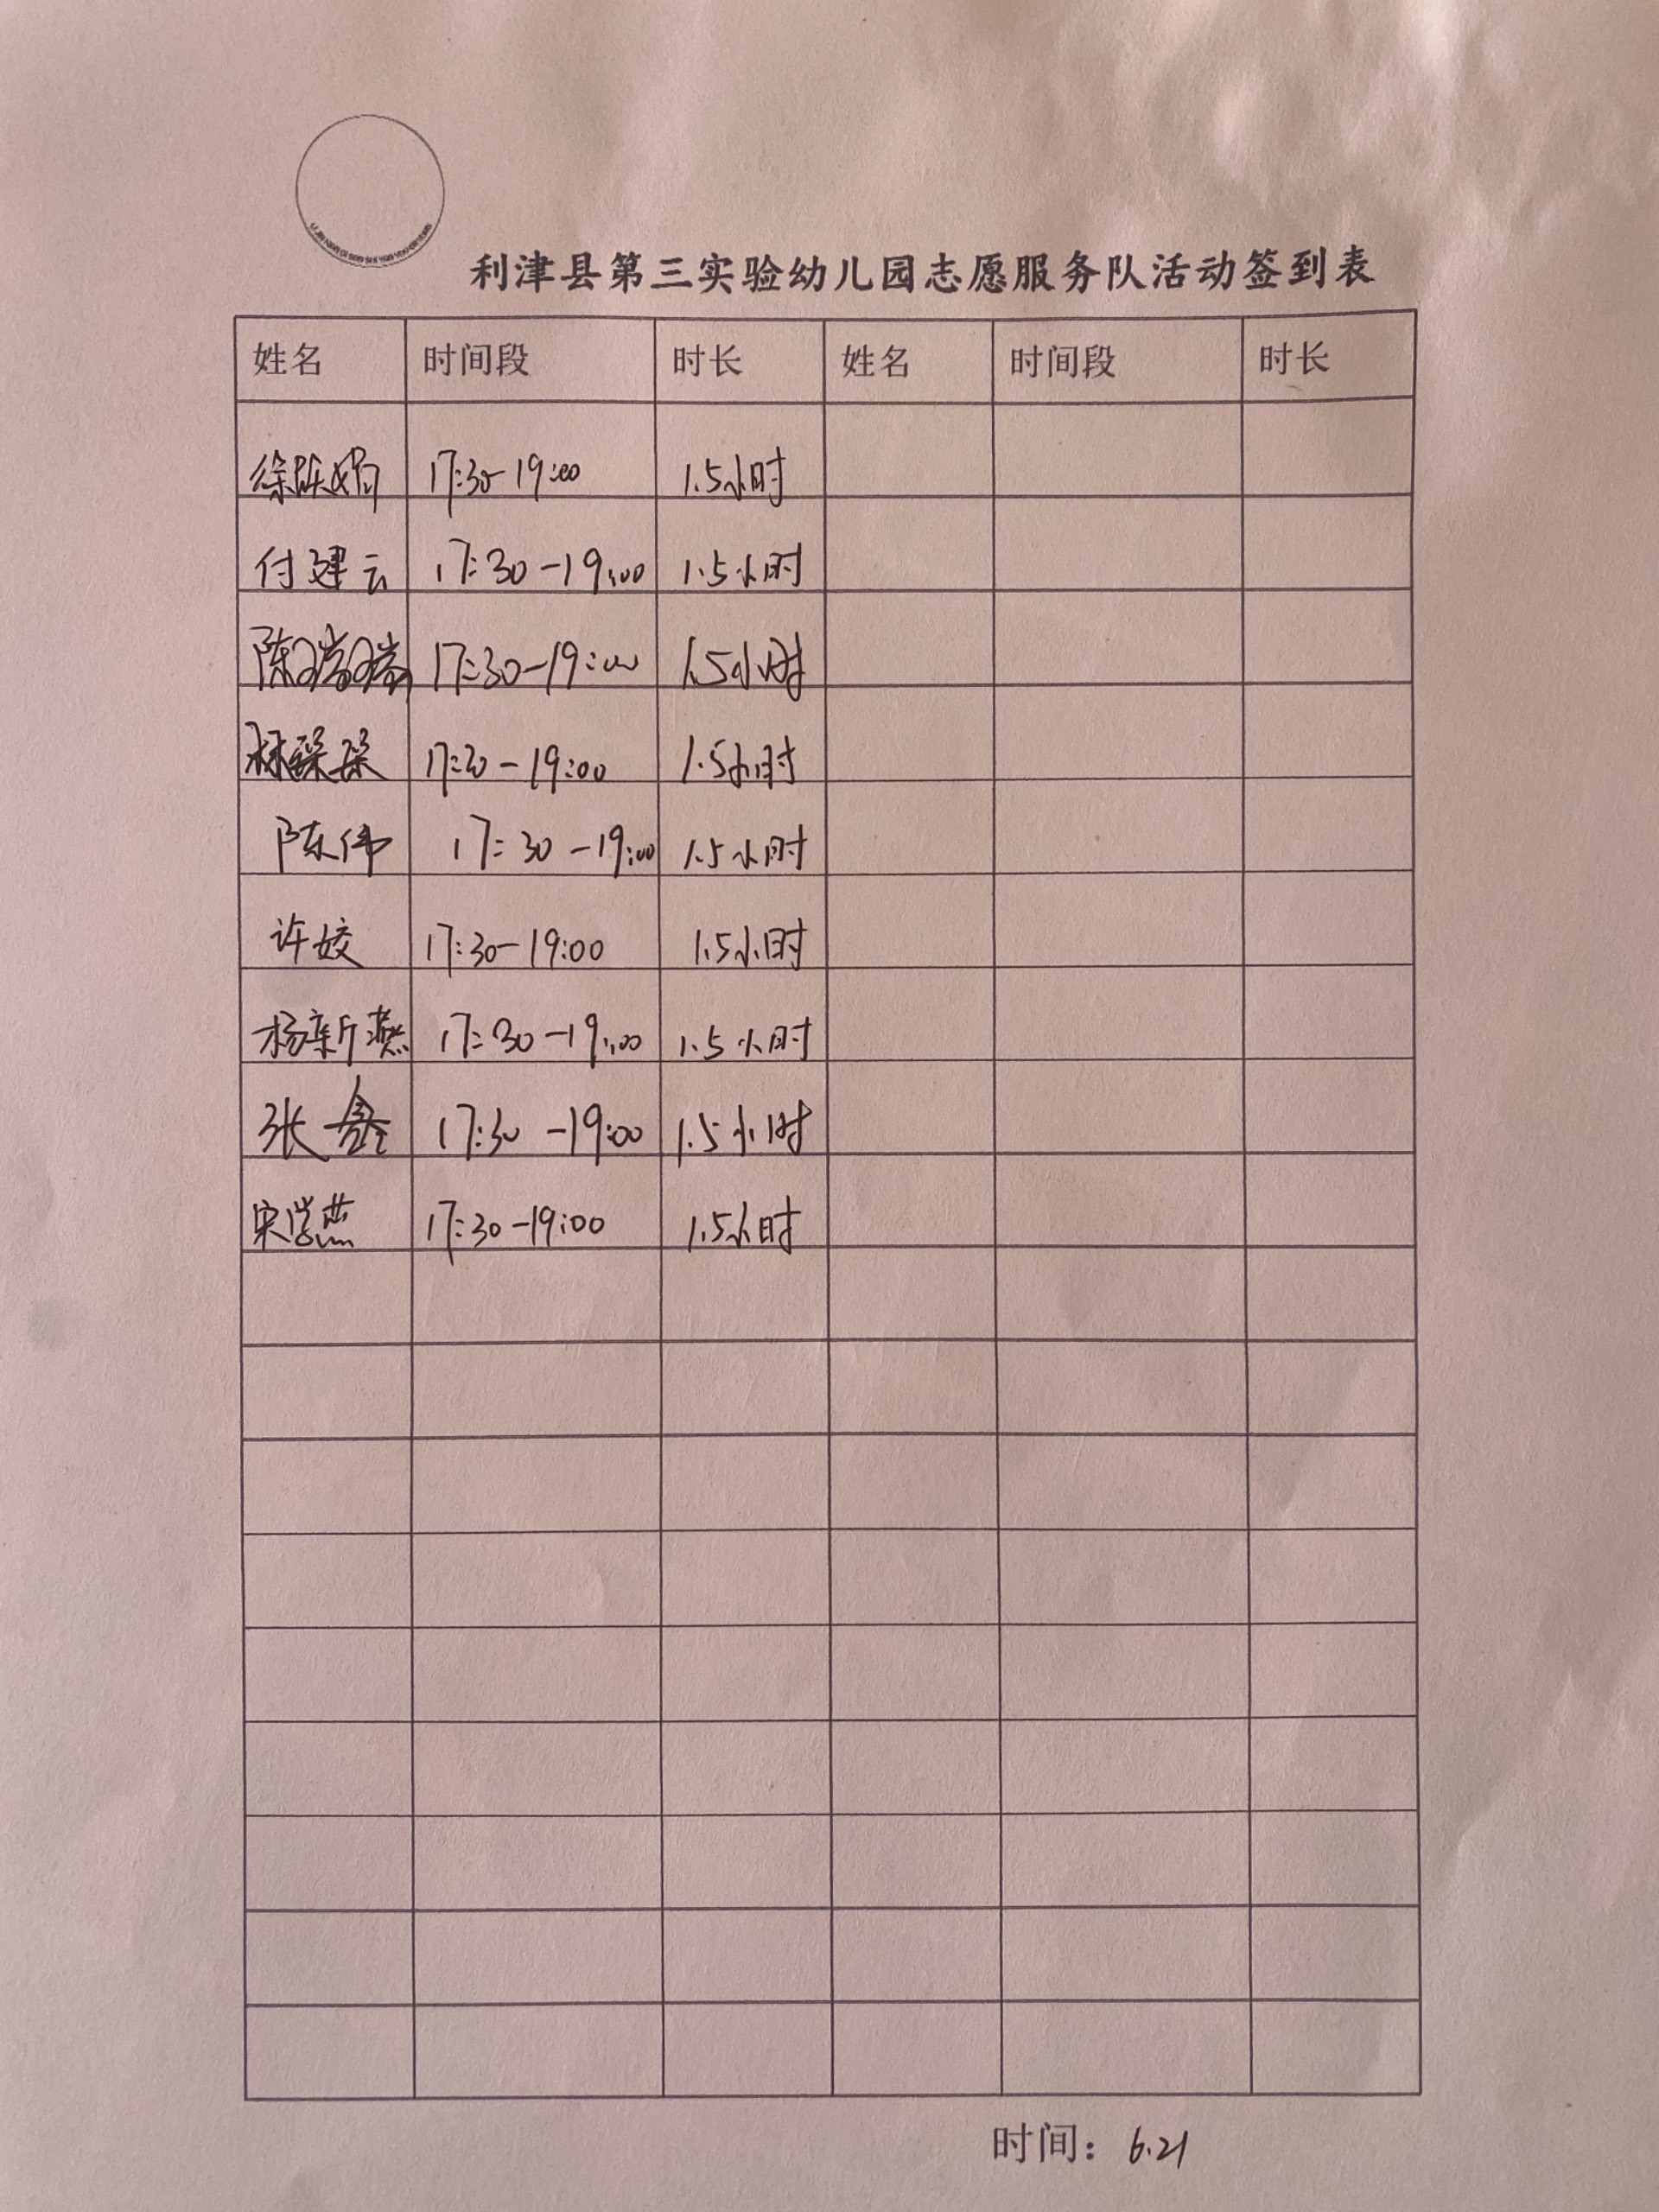 利津县第三实验幼儿园志愿服务队活动签到表
姓名 时间段 时长 姓名 时间段 时长
17:30-19:00 1.5小时
付建云 17:30-19:00 1.5小时
陈瑞瑞 17:30-19:00 1.5小时
林琛琛 17:30-19:00 1.5小时
陈伟 17:30-19:00 1.5小时
许姣 17:30-19:00 1.5小时
杨新燕 17:30-19:00 1.5小时
张鑫 17:30-19:00 1.5小时
宋学燕 17:30-19:00 1.5小时
时间：6.21